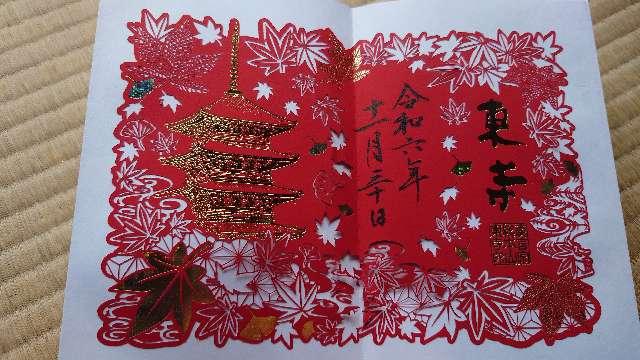 東寺
令和六年
十一月三十日